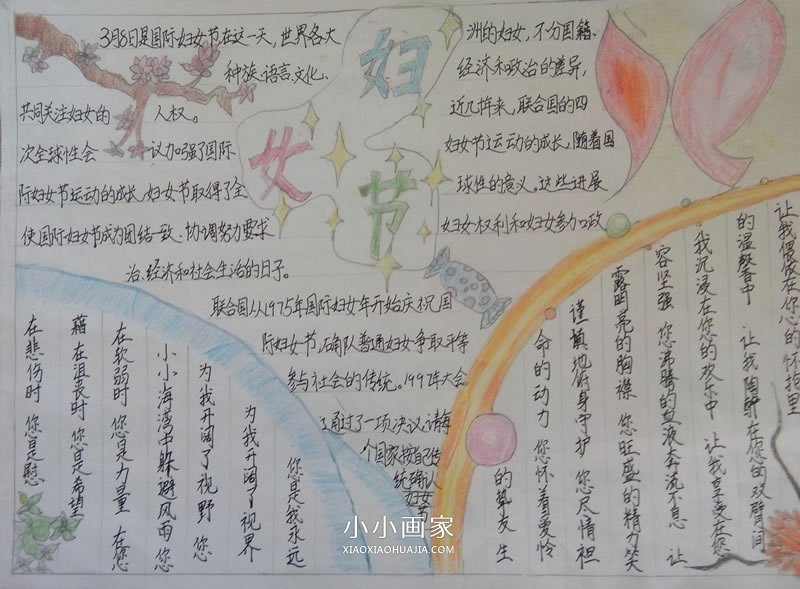 妇
女
节
3月8日是国际妇女节在这一天,世界各大
洲的妇女,不分国籍、
种族、语言、文化、
经济和政治的差异,
共同关注妇女的
人权。
近几
来,联合国的四
次全球性会
议加强了国际
妇女节运动的成长,随着国
际妇女节运动的成长,妇女节取得了全
球性的意义。这些进展
使国际妇女节成为团结一致、协调努力要求
妇女权利和妇女参加政
治、经济和社会生活的日子。
联合国从1975年国际妇女年开始庆祝国
际妇女节,确
普通妇女争取平等
参与社会的传统。1997年大会
通过了一项决议,请每
个国家按自己
统确认
妇女
在悲伤时 您是慰
藉 在沮丧时 您是希望
在软弱时 您是力量 在您
小小海湾中躲避风雨 您
为我开阔了视野 您
为我开阔了视界
您是我永远
的挚友 生
命的动力 您怀着爱怜
谨慎地俯身守护 您尽情袒
露明亮的胸襟 您旺盛的精力笑
容坚强 您沸腾的血液奔流不息 让
我沉浸在您的欢乐中 让我享受在您
的温馨香中 让我陶醉在您的双臂间
让我偎依在您心的怀抱里
小小画家
XIAOXIAOHUAJIA.COM